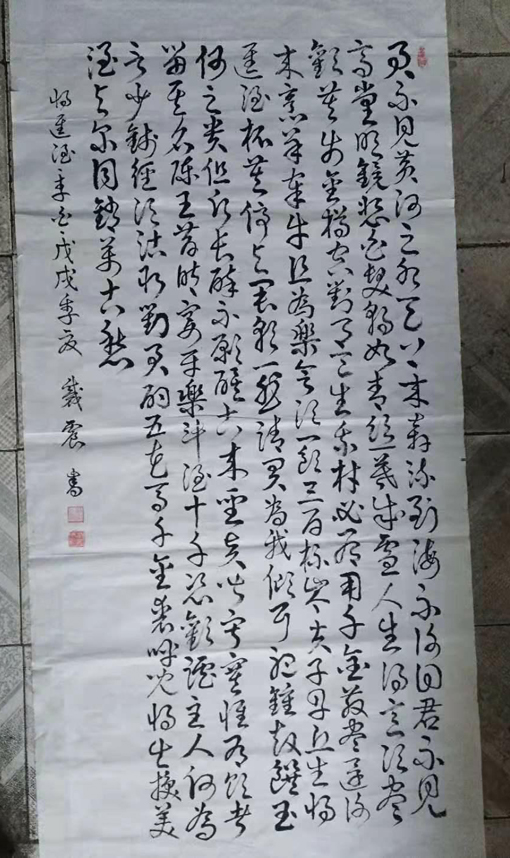 君不見黃河之水天上來奔流到海不復回君不見
高堂明鏡悲白髮朝如青絲暮成雪人生得意須盡
歡莫使金樽空對月天生我材必有用千金散盡還復
來烹羊宰牛且為樂會須一飲三百杯岑夫子丹丘生將
進酒杯莫停與君歌一曲請君為我傾耳聽鐘鼓饌玉
何足貴但願長醉不願醒古來聖賢皆寂寞惟有飲者
留其名陳王昔時宴平樂斗酒十千恣歡謔主人何為
言少錢徑須沽取對君酌五花馬千金裘呼兒將出換美
酒與爾同銷萬古愁
將進酒李白戊戌季夏 戴震 書